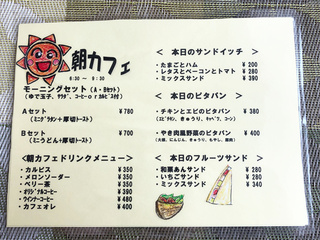 朝カフェ
8:30 ～ 9:30
モーニングセット (A・Bセット)
(ゆで玉子、サラダ、コーヒーor カルピス付)
Aセット ¥780
(ミニグラタン+厚切トースト)
Bセット ¥700
(ミニうどん+厚切トースト)
<朝カフェドリンクメニュー>
・カルピス ¥350
・メロンソーダー ¥350
・ベリー茶 ¥350
・オリジナルコーヒー ¥390
・ウインナーコーヒー ¥480
・カフェオレ ¥400
< 本日のサンドイッチ >
・たまごとハム ¥200
・レタスとベーコンとトマト ¥280
・ミックスサンド ¥390
< 本日のピタパン >
・チキンとエビのピタパン ¥380
きゅうり、
・やき肉風野菜のピタパン ¥400
(大根、にんじん、きゅうり、もやし、豚肉)
< 本日のフルーツサンド >
・和栗あんサンド ¥280
・いちごサンド ¥280
・ミックスサンド ¥340